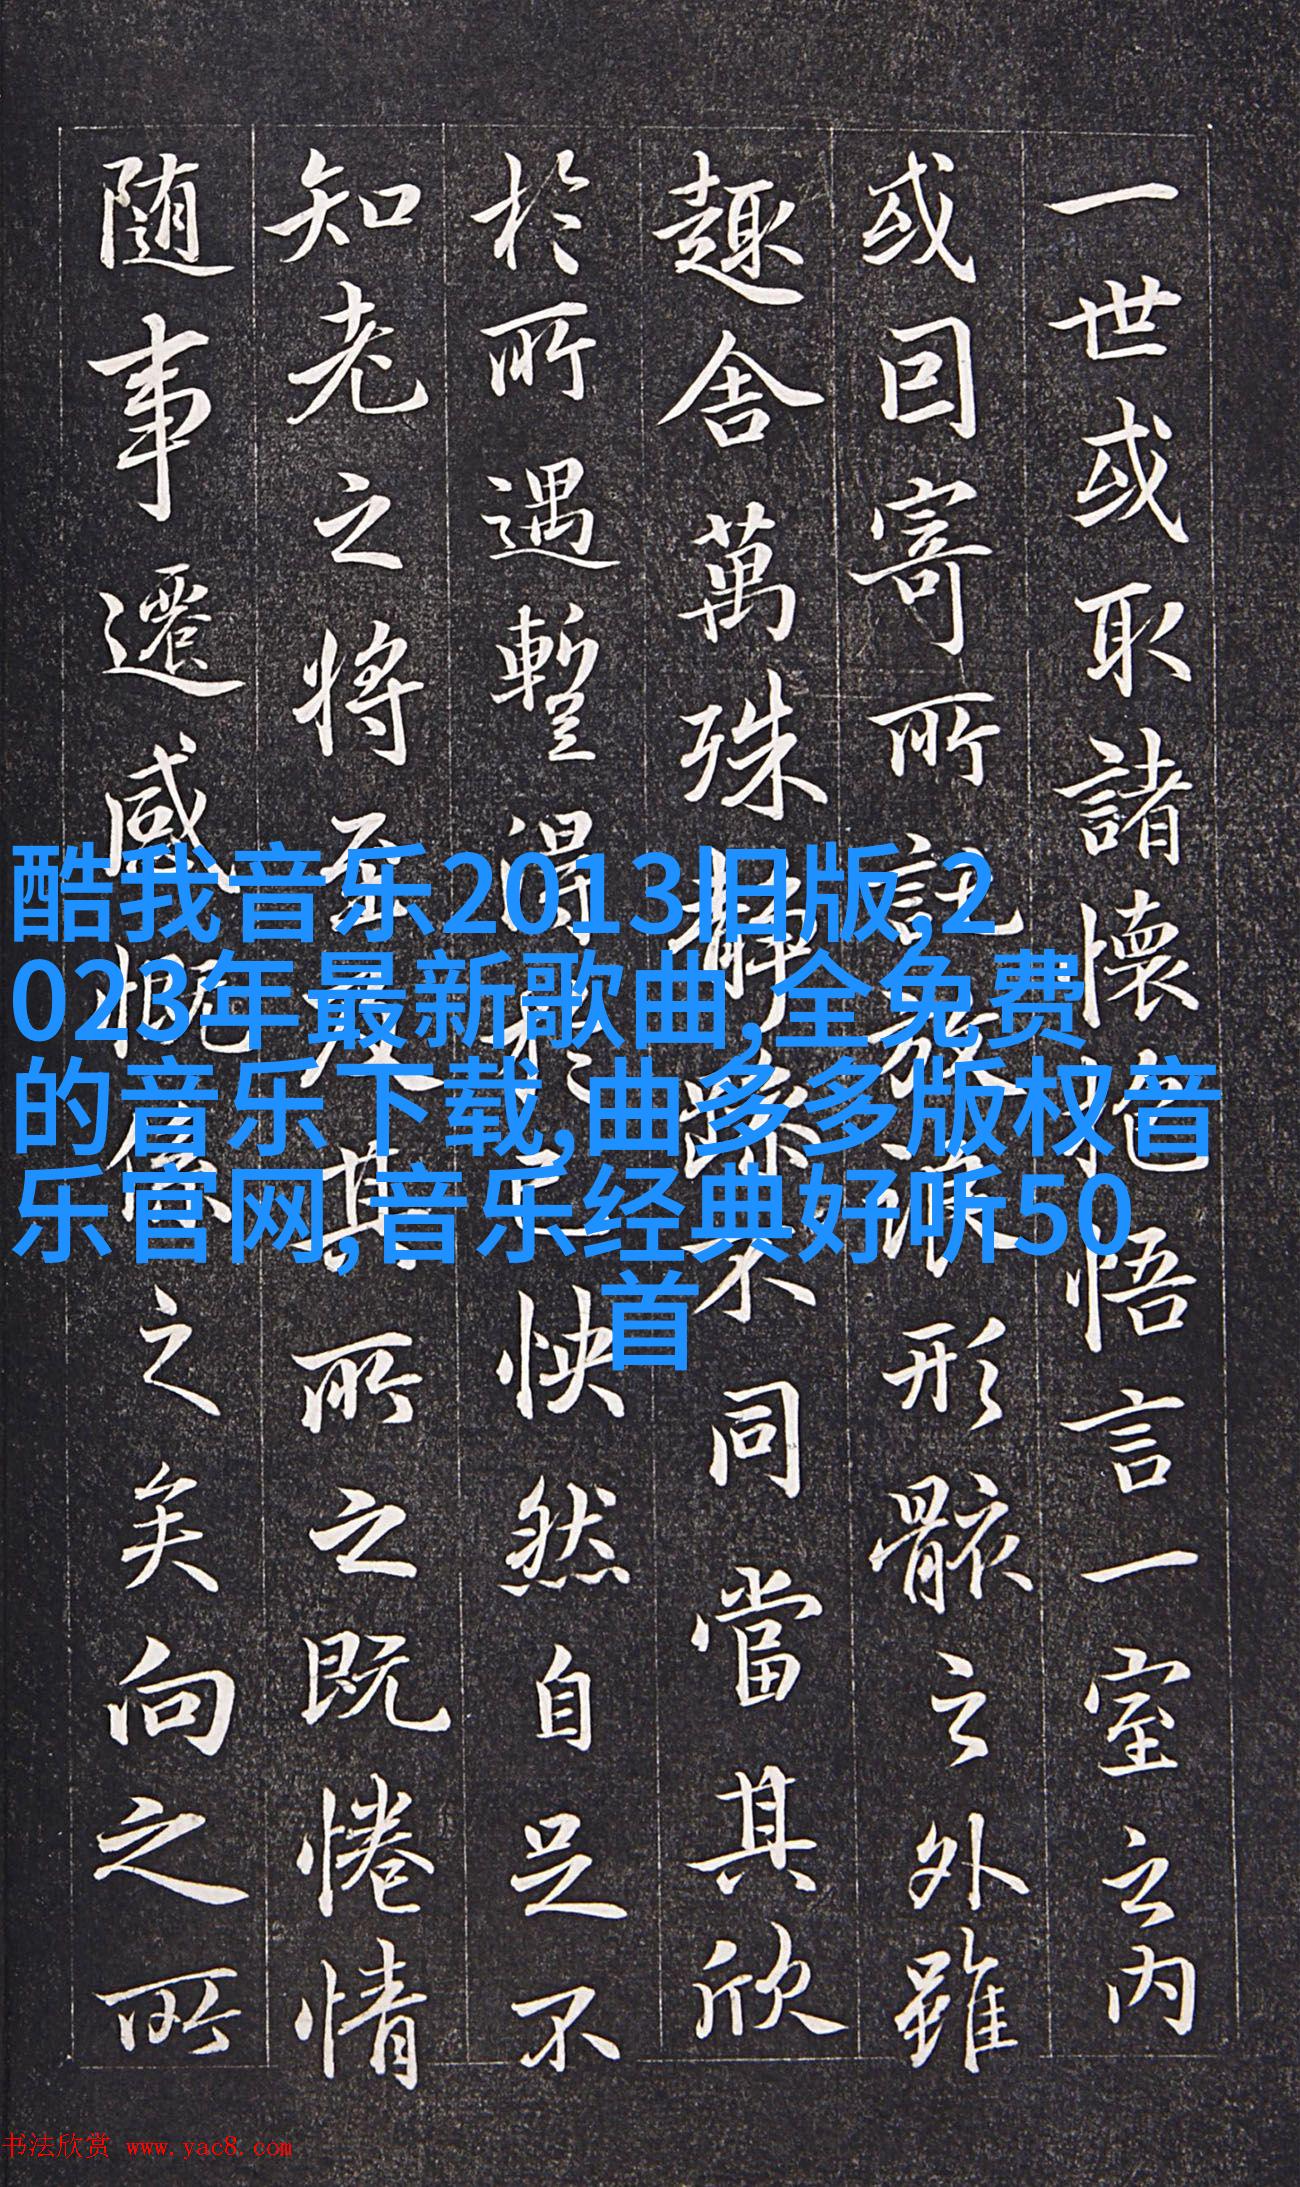 一世或取諸懷抱悟言一室之内
或因寄所託放浪形骸之外雖
趣舍萬殊靜躁不同當其欣
於所遇暫得於己快然自足不
知老之將至及其所之既惓情
随事遷感慨係之矣向之所
酷我音乐2013旧版,2
023年最新歌曲,全免费
的音乐下载,曲多多版权音
乐官网,音乐经典好听50
首
书法欣赏 www.yac8.com